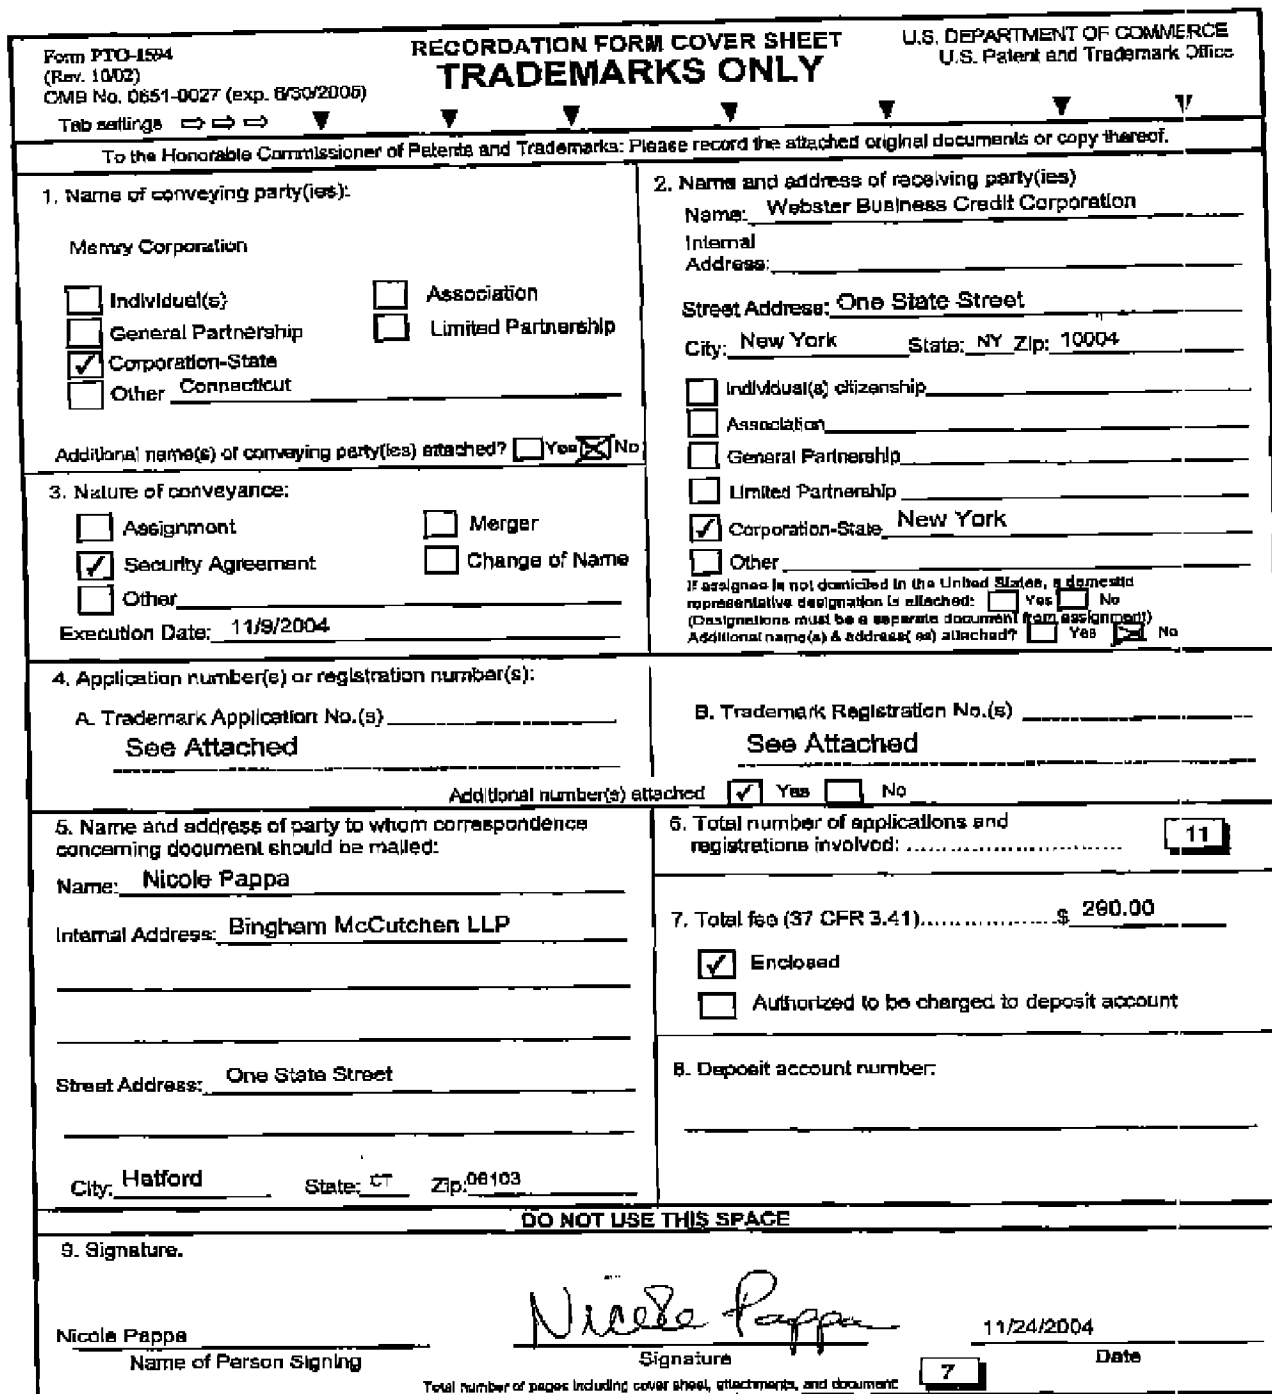 Form PTO-1594
(Rev. 10/02)
OMB No. 0651-0027 (exp. 6/30/2005)
Tab settings
RECORDATION FORM COVER SHEET
TRADEMARKS ONLY
U.S. DEPARTMENT OF COMMERCE
U.S. Patent and Trademark Office
To the Honorable Commissioner of Patents and Trademarks: Please record the attached original documents or copy thereof.
1. Name of conveying party(ies):
Memry Corporation
Individual(s)
Association
General Partnership
Limited Partnership
Corporation-State
Other Connecticut
Additional name(s) of conveying party(ies) attached? Yes No
2. Name and address of receiving party(ies)
Name: Webster Business Credit Corporation
Internal
Address:
Street Address: One State Street
City: New York State: NY Zip: 10004
Individual(s) citizenship
Association
General Partnership
Limited Partnership
Corporation-State New York
Other
If assignee is not domiciled in the United States, a domestic
representative designation is attached: Yes No
(Designations must be a separate document from assignment)
Additional name(s) & address( es) attached? Yes No
3. Nature of conveyance:
Assignment
Merger
Security Agreement
Change of Name
Other
Execution Date: 11/9/2004
4. Application number(s) or registration number(s):
A. Trademark Application No.(s)
See Attached
B. Trademark Registration No.(s)
See Attached
Additional number(s) attached Yes No
5. Name and address of party to whom correspondence
concerning document should be mailed:
Name: Nicole Pappa
Internal Address: Bingham McCutchen LLP
Street Address: One State Street
City: Hatford State: CT Zip: 06103
6. Total number of applications and
registrations involved: .............................. 11
7. Total fee (37 CFR 3.41)...................$ 290.00
Enclosed
Authorized to be charged to deposit account
8. Deposit account number:
DO NOT USE THIS SPACE
9. Signature.
Nicole Pappa
Nicole Pappa
11/24/2004
Name of Person Signing
Signature
Date
Total number of pages including cover sheet, attachments, and document: 7